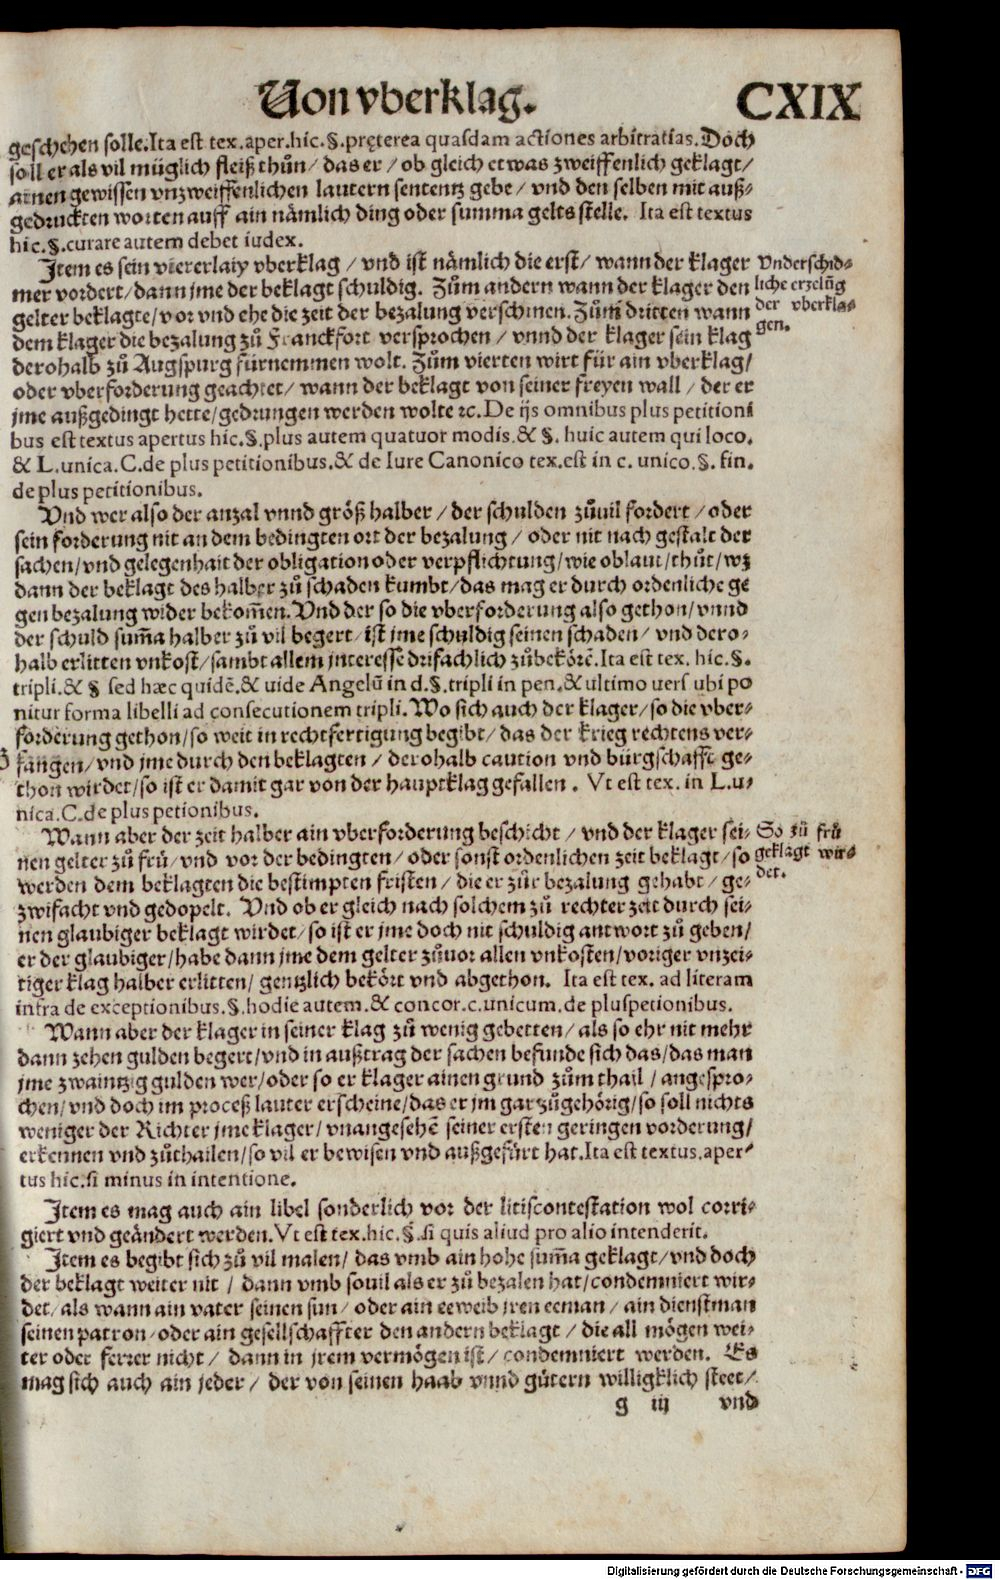 Von vberklag. CXIX
geschehen solle. Ita est tex. aper. hic. §. pręterea quasdam actiones arbitrarias. Doch
soll er als vil müglich fleiß thůn / das er / ob gleich etwas zweiffenlich geklagt /
ainen gewissen vnzweiffenlichen lautern sententz gebe / vnd den selben mit auß-
gedruckten worten auff ain nämlich ding oder summa gelts stelle. Ita est textus
hic. §. curare autem debet iudex.
Item es sein viererlaiy vberklag / vnd ist nämlich die erst / wann der klager
mer vordert / dann jme der beklagt schuldig. Zům andern wann der klager den
gelter beklagte / vor vnd ehe die zeit der bezalung verschinen. Zům dritten wann
dem klager die bezalung zů Franckfort versprochen / vnnd der klager sein klag
derohalb zů Augspurg fürnemmen wolt. Zům vierten wirt für ain vberklag /
oder vberforderung geachtet / wann der beklagt von seiner freyen wall / der er
jme außgedingt hette / gedrungen werden wolte ⁊c. De ijs omnibus plus petitioni
bus est textus apertus hic. §. plus autem quatuor modis. & §. huic autem qui loco.
& L. unica. C. de plus petitionibus. & de Iure Canonico tex. est in c. unico. §. fin.
de plus petitionibus.
Vnderschid-
liche erzelūg
der vberkla-
gen.
Vnd wer also der anzal vnnd größ halber / der schulden zůuil fordert / oder
sein forderung nit an dem bedingten ort der bezalung / oder nit nach gestalt der
sachen / vnd gelegenhait der obligation oder verpflichtung / wie oblaut / thůt / wz
dann der beklagt des halber zů schaden kumbt / das mag er durch ordenliche ge
gen bezalung wider bekom̄en. Vnd der so die vberforderung also gethon / vnnd
der schuld sum̄a halber zů vil begert / ist jme schuldig seinen schaden / vnd dero-
halb erlitten vnkost / sambt allem jnteresse drifachlich zůbekörē. Ita est tex. hic. §.
tripli. & § sed hæc quidē. & uide Angelū in d. §. tripli in pen. & ultimo uers ubi po
nitur forma libelli ad consecutionem tripli. Wo sich auch der klager / so die vber-
forderung gethon / so weit in rechtfertigung begibt / das der krieg rechtens ver-
fangen / vnd jme durch den beklagten / derohalb caution vnd bürgschafft ge-
thon wirdet / so ist er damit gar von der hauptklag gefallen. Vt est tex. in L. u-
nica. C. de plus petionibus.
Wann aber der zeit halber ain vberforderung beschicht / vnd der klager sei-
nen gelter zů frů / vnd vor der bedingten / oder sonst ordenlichen zeit beklagt / so
werden dem beklagten die bestimpten fristen / die er zůr bezalung gehabt / ge-
zwifacht vnd gedopelt. Vnd ob er gleich nach solchem zů rechter zeit durch sei-
nen glaubiger beklagt wirdet / so ist er jme doch nit schuldig antwort zů geben /
er der glaubiger / habe dann jme dem gelter zůuor allen vnkosten / voriger vnzei-
tiger klag halber erlitten / gentzlich bekört vnd abgethon. Ita est tex. ad literam
infra de exceptionibus. §. hodie autem. & concor. c. unicum. de pluspetionibus.
So zů frů
geklagt wir-
det.
Wann aber der klager in seiner klag zů wenig gebetten / als so ehr nit mehr
dann zehen gulden begert / vnd in außtrag der sachen befunde sich das / das man
jme zwaintzig gulden wer / oder so er klager ainen grund zům thail / angespro-
chen / vnd doch im proceß lauter erscheine / das er jm gar zůgehörig / so soll nichts
weniger der Richter jme klager / vnangesehē seiner ersten geringen vorderung /
erkennen vnd zůthailen / so vil er bewisen vnd außgefürt hat. Ita est textus. aper-
tus hic. si minus in intentione.
Item es mag auch ain libel sonderlich vor der litiscontestation wol corri-
giert vnd geändert werden. Vt est tex. hic. §. si quis aliud pro alio intenderit.
Item es begibt sich zů vil malen / das vmb ain hohe sum̄a geklagt / vnd doch
der beklagt weiter nit / dann vmb souil als er zů bezalen hat / condemniert wir-
det / als wann ain vater seinen sun / oder ain eeweib jren eeman / ain dienstman
seinen patron / oder ain gesellschaffter den andern beklagt / die all mögen wei-
ter oder ferrer nicht / dann in jrem vermögen ist / condemniert werden. Es
mag sich auch ain jeder / der von seinen haab vnnd gütern willigklich steet /
g iij vnd
Digitalisierung gefördert durch die Deutsche Forschungsgemeinschaft - DFG